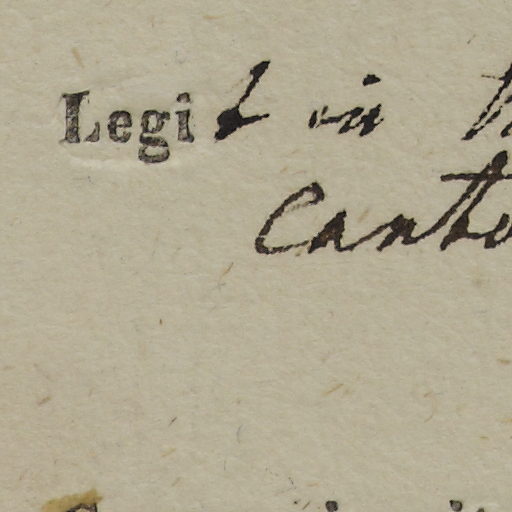 Legit in
Canto